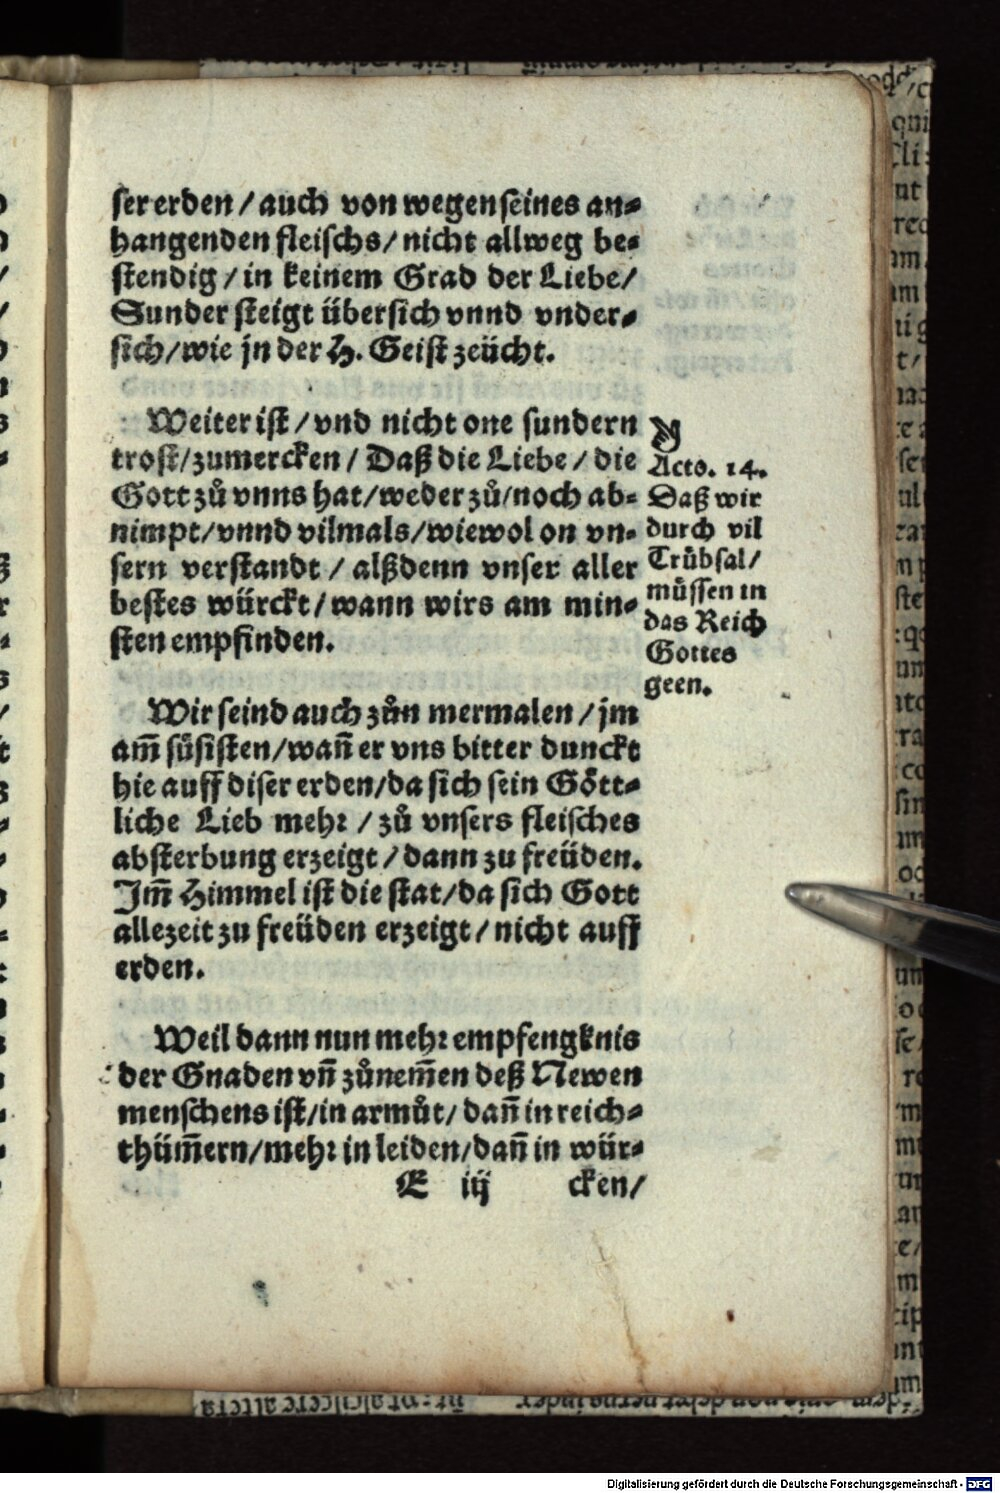 ser erden / auch von wegen seines an⸗
hangenden fleischs / nicht allweg be⸗
stendig / in keinem Grad der Liebe /
Sunder steigt übersich vnnd vnder⸗
sich / wie jn der H. Geist zeücht.
Weiter ist / vnd nicht one sundern
trost / zumercken / Daß die Liebe / die
Gott zů vnns hat / weder zů / noch ab⸗
nimpt / vnnd vilmals / wiewol on vn⸗
sern verstandt / alßdenn vnser aller
bestes würckt / wann wirs am min⸗
sten empfinden.
Acto. 14.
Daß wir
durch vil
Trübsal /
müssen in
das Reich
Gottes
geen.
Wir seind auch zůn mermalen / jm
am̃ süsisten / wañ er vns bitter dunckt
hie auff diser erden / da sich sein Gött⸗
liche Lieb mehr / zů vnsers fleisches
absterbung erzeigt / dann zu freüden.
Im̃ Himmel ist die stat / da sich Gott
allezeit zu freüden erzeigt / nicht auff
erden.
Weil dann nun mehr empfengknis
der Gnaden vñ zůnem̃en deß Newen
menschens ist / in armůt / dañ in reich⸗
thüm̃ern / mehr in leiden / dañ in wür⸗
E iij cken /
Digitalisierung gefördert durch die Deutsche Forschungsgemeinschaft - DFG